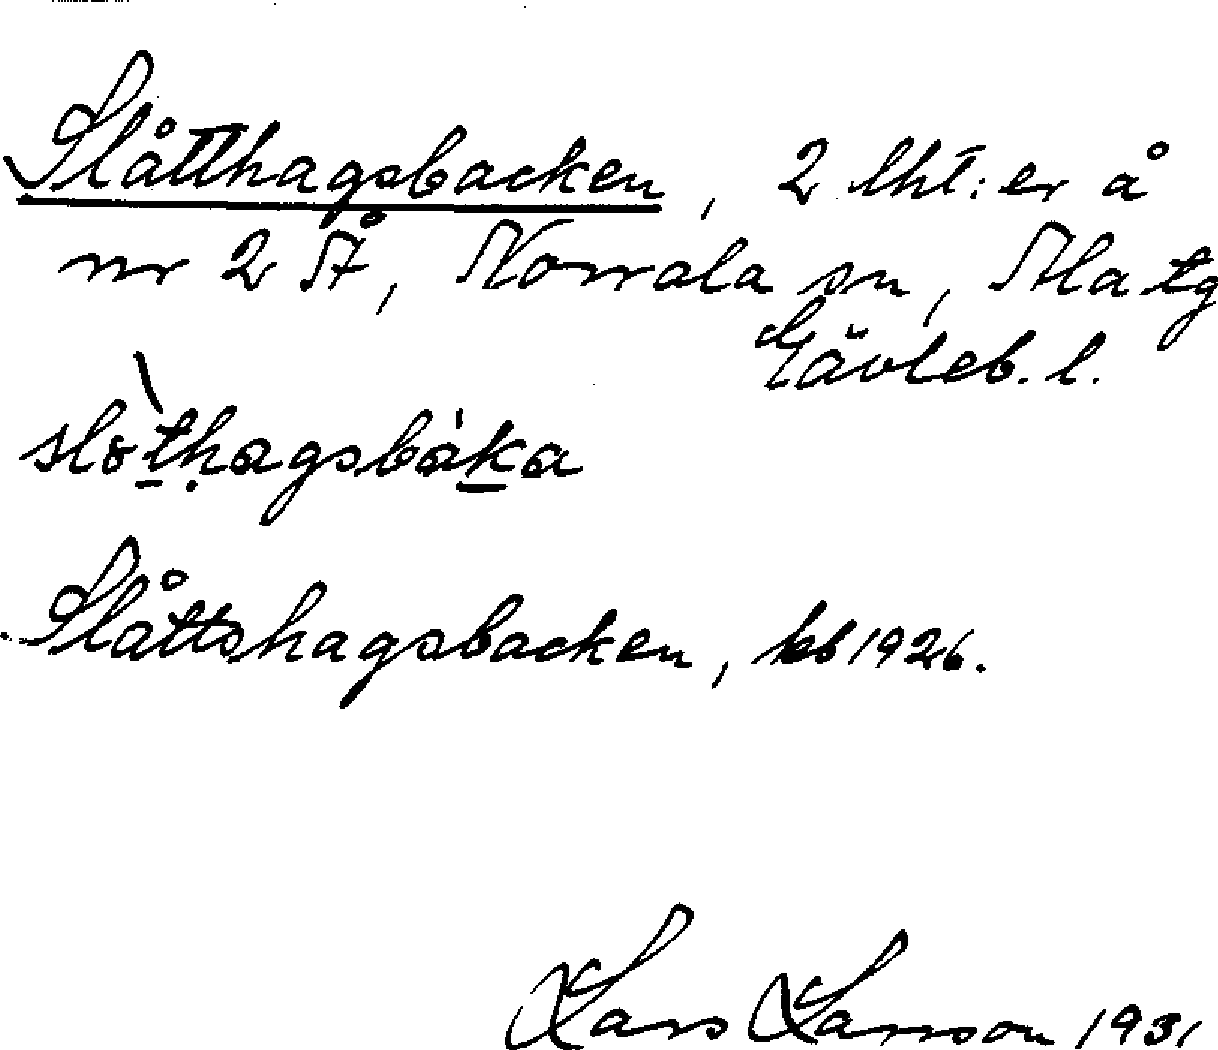 Slåtthagsbacken, 2 lht:er å
nr 2 Å, Norrala sn, Ala tg
Gävleb. l.
slòthagsbáka
Slåttshagsbacken, kb 1926.
Lars Larsson 1931